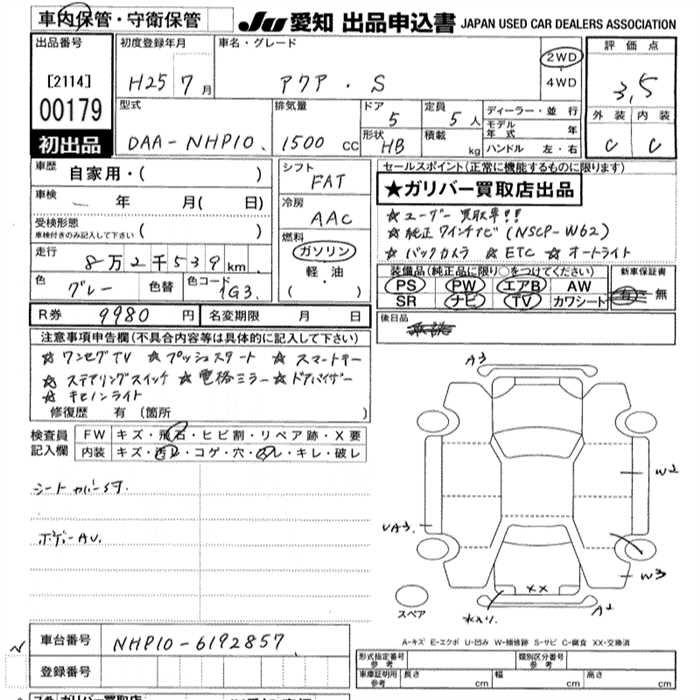 車内保管・守衛保管
JU 愛知 出品申込書 JAPAN USED CAR DEALERS ASSOCIATION
出品番号
[2114]
00179
初出品
初度登録年月
H25 7月
車名・グレード
アクア・S
2WD
4WD
評価点
3,5
外装 内装
C C
型式
DAA-NHP10
排気量
1500 CC
ドア
5
定員
5人
形状
HB
積載
kg
ディーラー・並行
モデル年式 年
ハンドル 左・右
車歴
自家用・( )
車検
年 月( 日)
受検形態
車検付きのみ記入して下さい ( )
走行
8万2千539km
色
グレー
色替
色コード
1G3.
シフト
FAT
冷房
AAC
燃料
ガソリン
軽油
( ・ )
セールスポイント(正常に機能するものに限ります)
★ガリバー買取店出品
☆ユーザー買取車!!
☆純正ワインナビ(NSCP-W62)
☆バックカメラ ☆ETC ☆オートライト
装備品(純正品に限り○をつけてください)
PS PW エアB AW
SR ナビ TV カワシート
新車保証書
有・無
後日品
R券 9980 円 名変期限 月 日
注意事項申告欄(不具合内容等は具体的に記入して下さい)
☆ワンセグTV ☆プッシュスタート ☆スマートキー
☆ステアリングスイッチ ☆電格ミラー ☆ドアバイザー
☆キセノンライト
修復歴 有 (箇所 )
検査員記入欄
FW キズ・飛石・ヒビ割・リペア跡・X要
内装 キズ・汚レ・コゲ・穴・スレ・キレ・破レ
シートカバー
ボデーAU.
A3
W2
UA3.
W3
XX
A2
スペア
A-キズ E-エクボ U-凹み W-補修跡 S-サビ C-腐食 XX-交換済
車台番号
NHP10-6192857
登録番号
形式指定番号 参考
類別区分番号 参考
車庫証明用 参考 長さ cm 幅 cm 高さ cm
ガリバー買取店